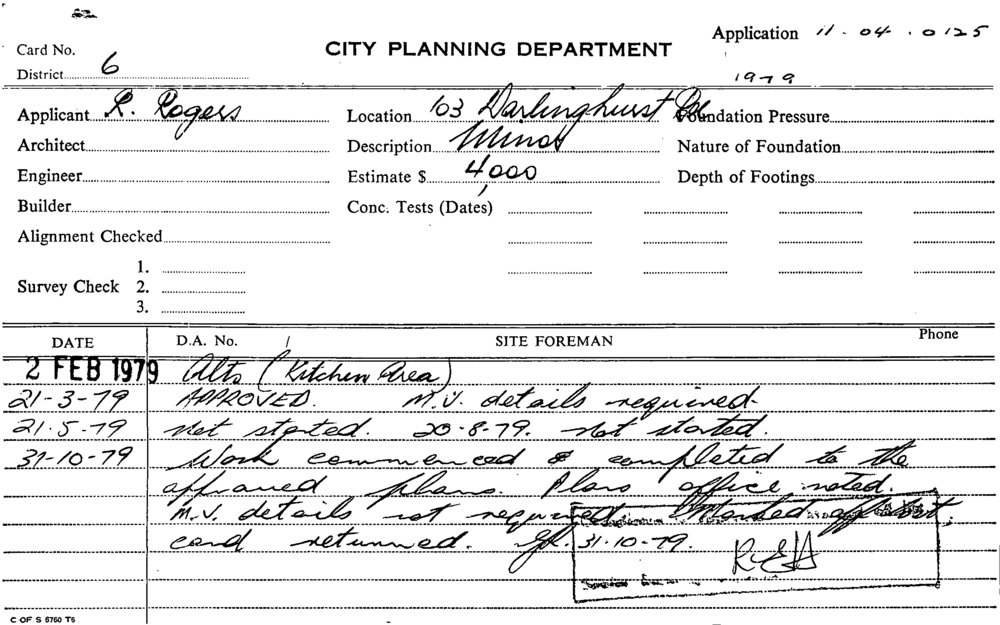 Application 11 . 04 . 0125
Card No.
CITY PLANNING DEPARTMENT
District 6
1979
Applicant R. Rogers
Location 103 Darlinghurst Rd
Foundation Pressure
Architect
Description Minor
Nature of Foundation
Engineer
Estimate $ 4,000
Depth of Footings
Builder
Conc. Tests (Dates)
Alignment Checked
Survey Check 1.
2.
3.
DATE D.A. No. SITE FOREMAN Phone
2 FEB 1979 Alts (Kitchen Area)
21-3-79 APPROVED. M.V. details required.
21-5-79 Not started. 20-8-79. Not started.
31-10-79 Work commenced & completed to the
approved plans. Plans office noted.
M.V. details not required.
card returned. 31-10-79.
REH
C OF S 5760 T6